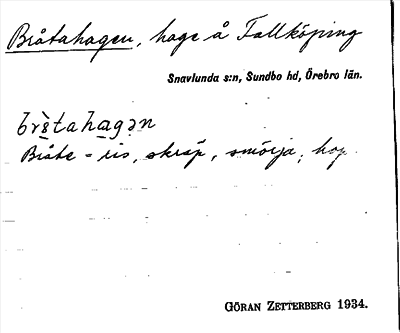 Bråtahagen, hage å Tallköping
Snavlunda s:n, Sundbo hd, Örebro län.
Bråte = ris, skräp, smörja, hop
GÖRAN ZETTERBERG 1934.